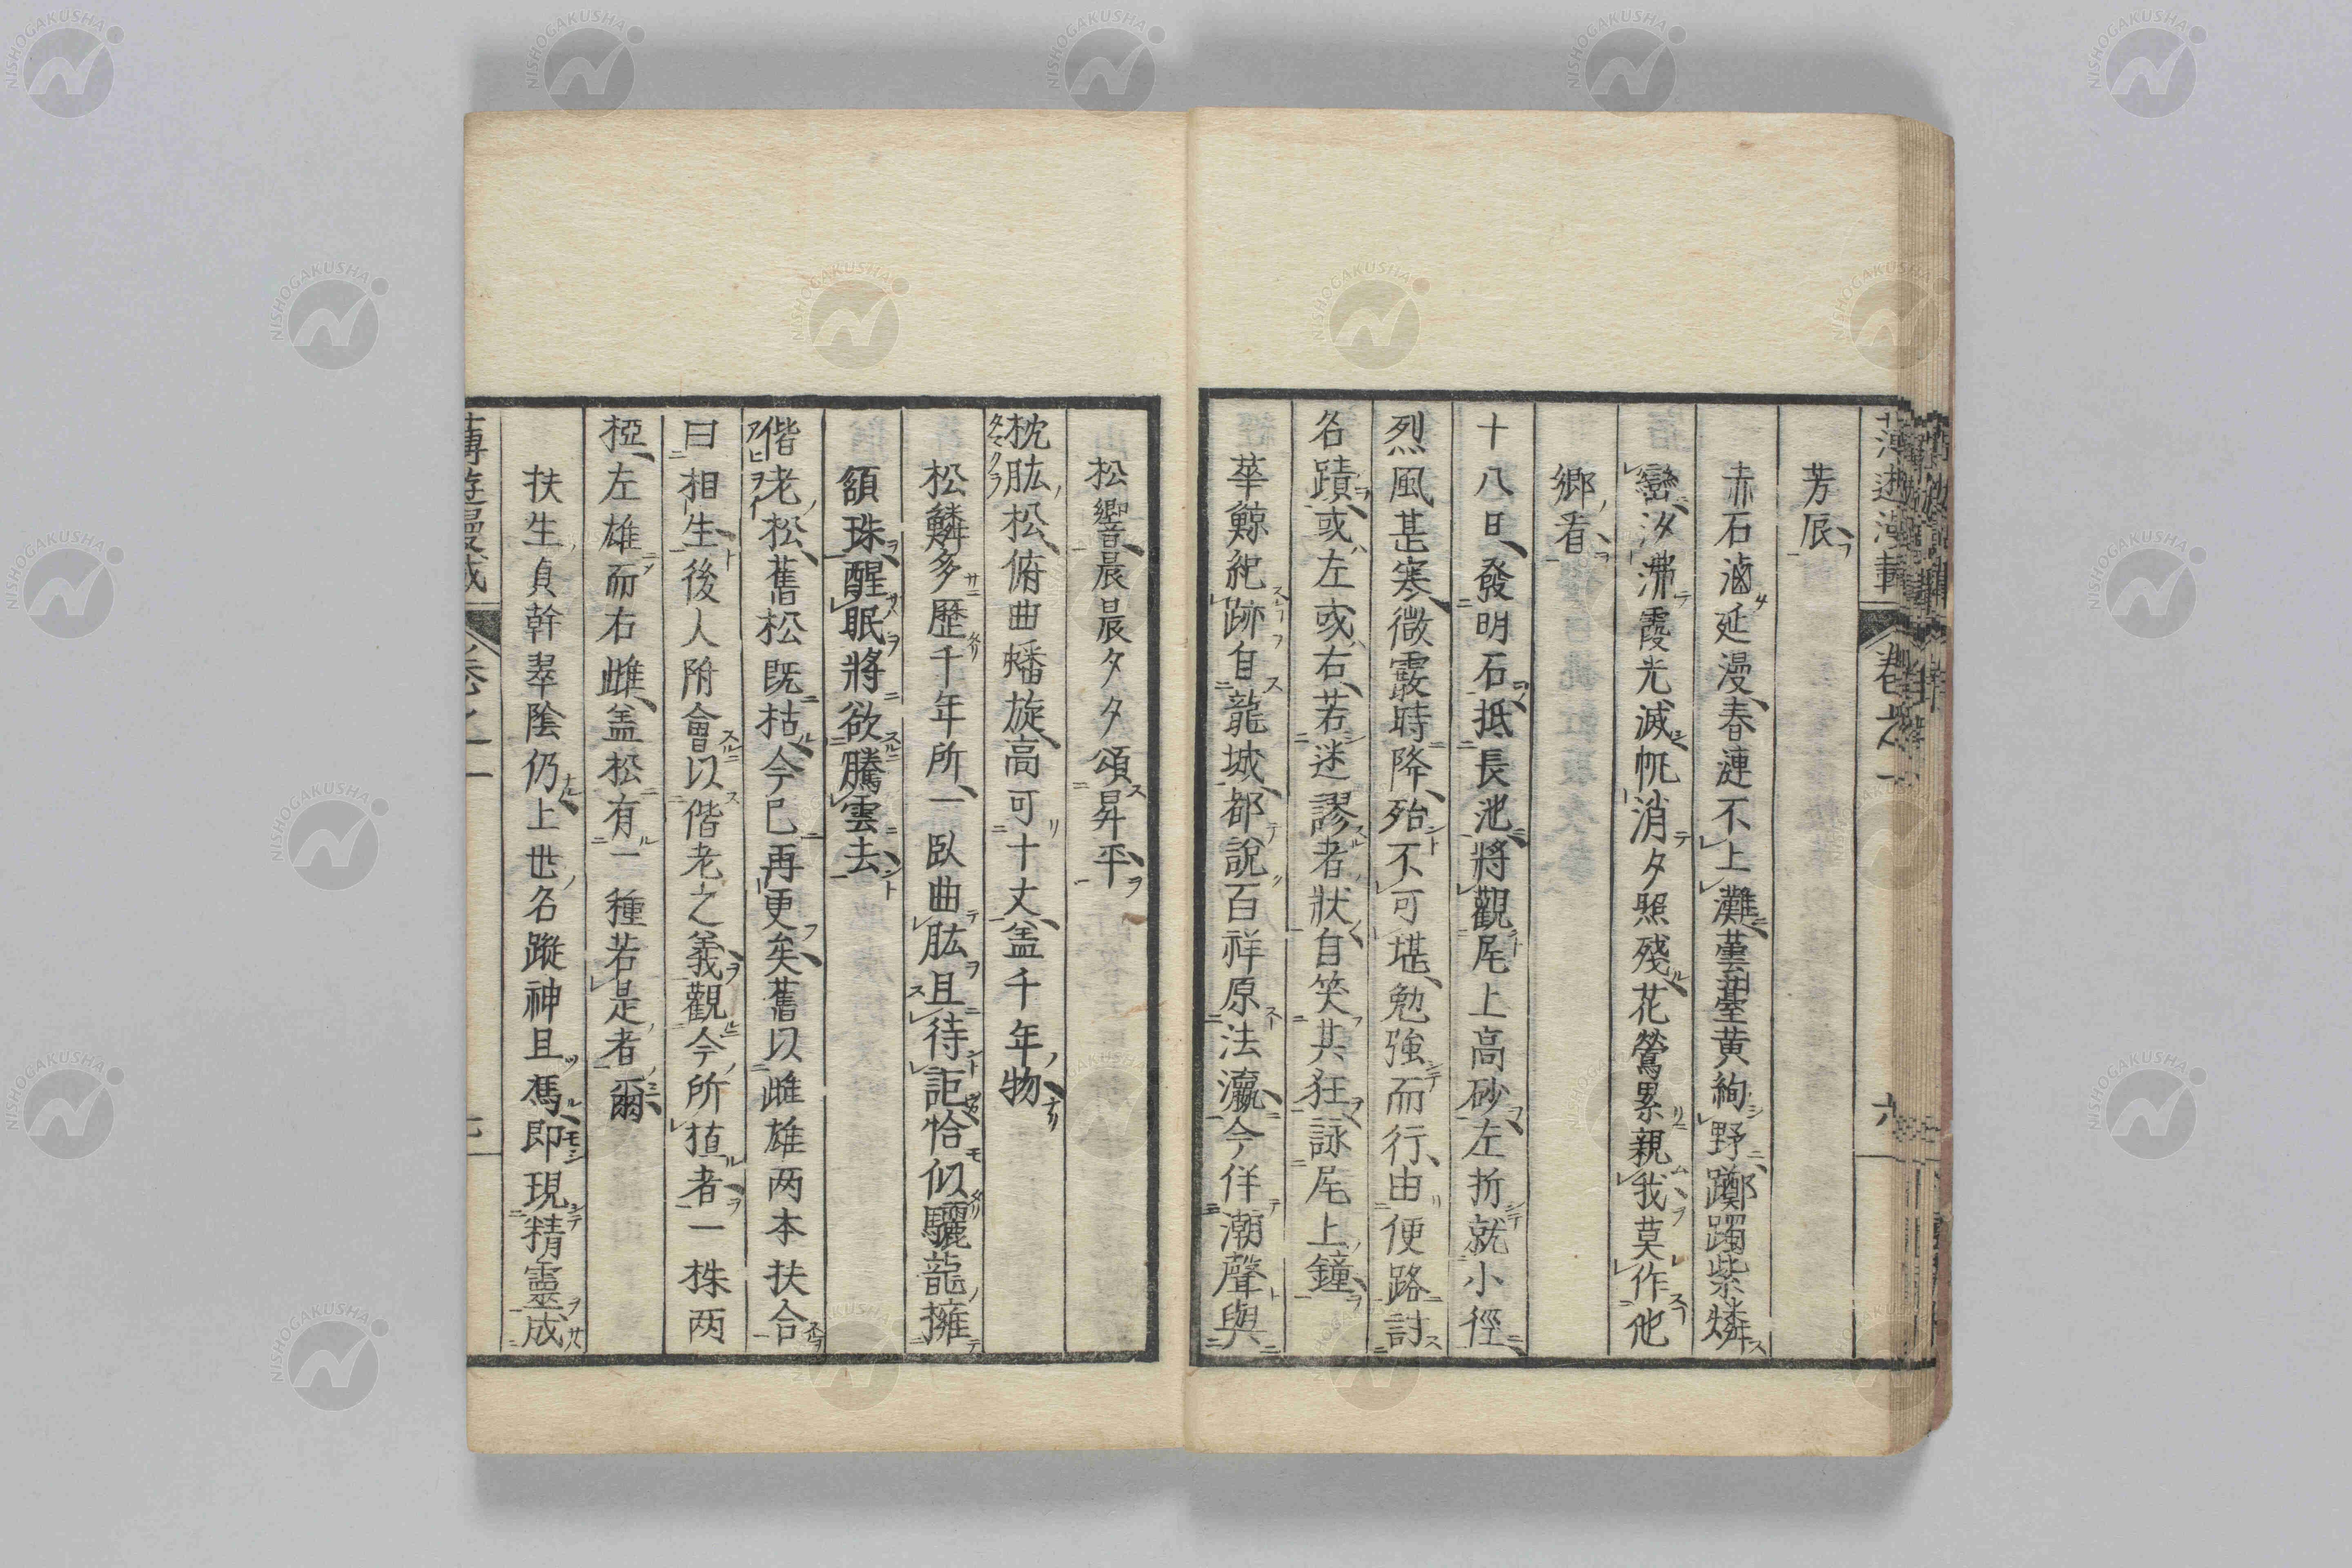 芳辰
赤石滷延漫春漣不上灘蕓薹黄絢野躑躅紫燐
巒汐沸霞光滅帆消夕照殘花鶯累親我莫作他
鄉看
十八日發明石抵長池將觀尾上高砂左折就小徑
烈風甚寒微霰時降殆不可堪勉強而行由便路討
名蹟或左或右若迷謬者狀自笑其狂詠尾上鐘
華鯨紀跡自龍城都說百祥原法瀛今佯潮聲與
松響晨晨夕夕頌昇平
枕肱松俯曲蟠旋高可十丈盖千年物
松鱗多歷千年所一臥曲肱且待詎恰似驪龍擁
頷珠醒眠將欲騰雲去
偕老松舊松既枯今已再更矣舊以雌雄两本扶合
曰相生後人附會以偕老之義觀今所植者一株两
椏左雄而右雌盖松有一種若是者爾
扶生貞幹翠陰仍上世名蹤神且馮即現精靈成
卷之一
NISHOGAKUSHA